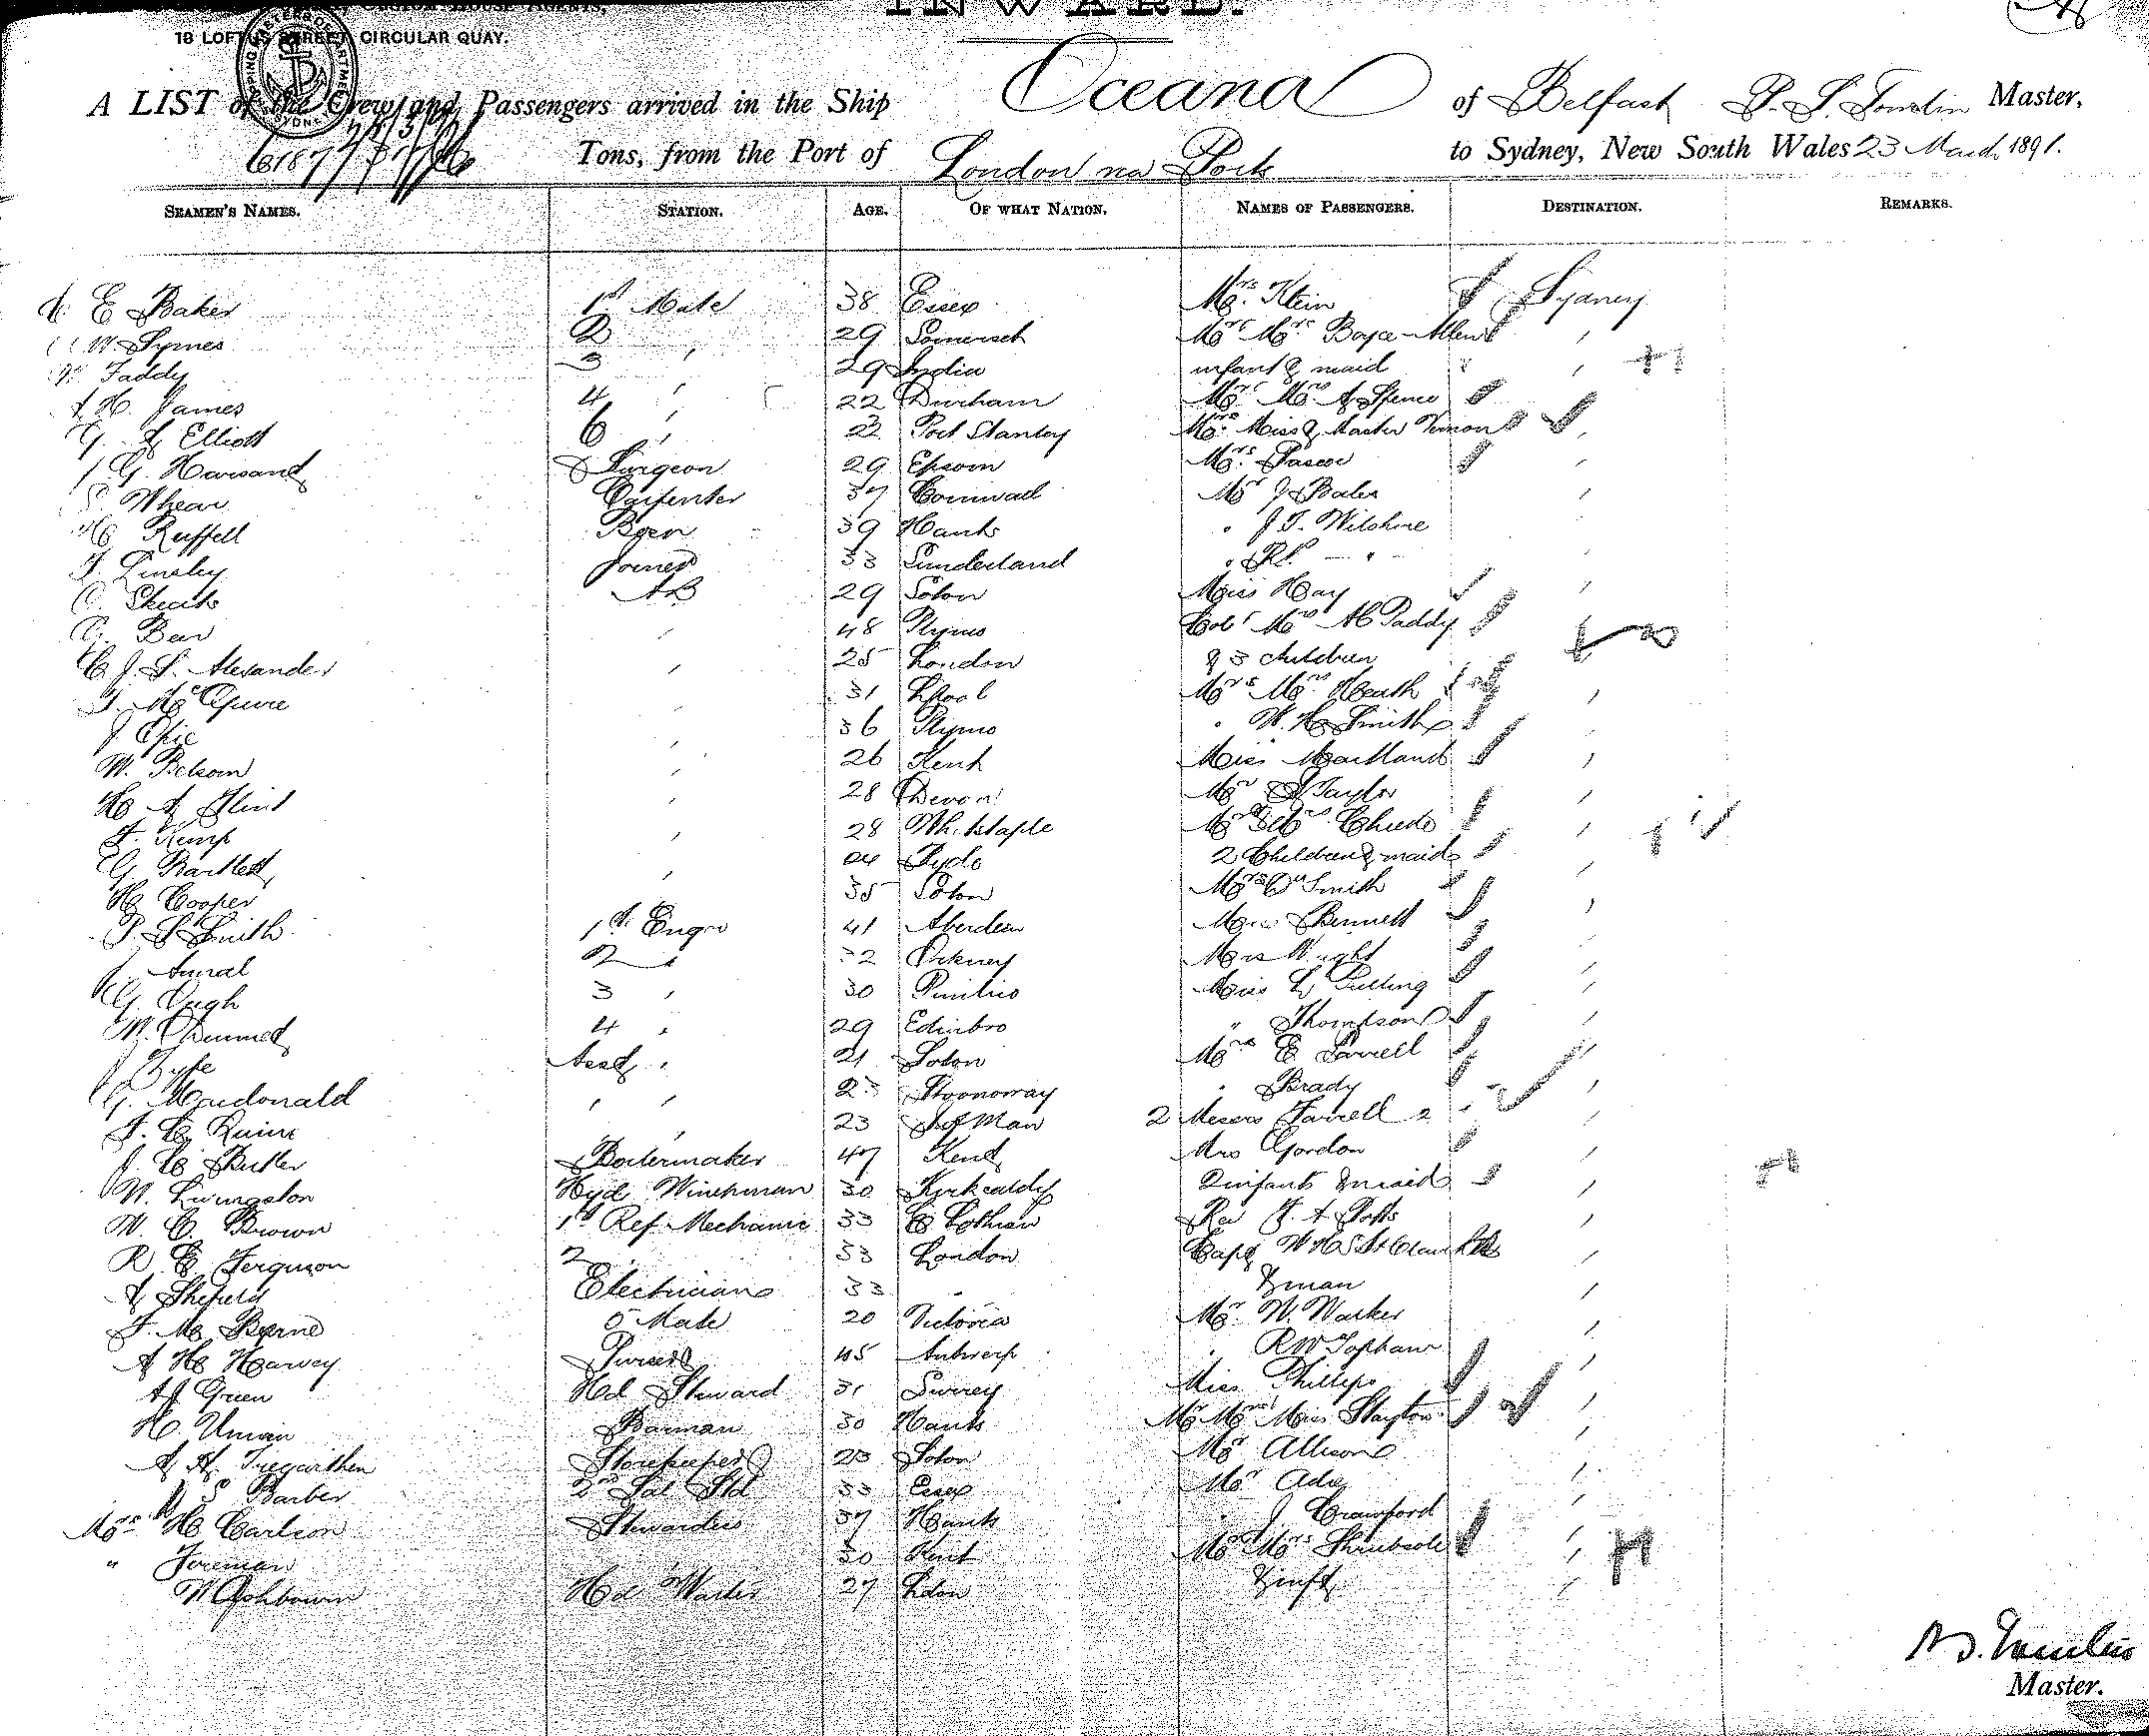 INWARD.
18 LOFTUS STREET CIRCULAR QUAY.
A LIST of the Crew and Passengers arrived in the Ship Oceana of Belfast P. S. Tomlin Master,
Tons, from the Port of London via Ports to Sydney, New South Wales 23 March 1891.
SEAMEN'S NAMES. STATION. AGE. OF WHAT NATION. NAMES OF PASSENGERS. DESTINATION. REMARKS.
E Baker 1st Mate 38 Essex Mrs. Klein Sydney
W Symes 2 29 Somerset Mr & Mrs Boyce-Allen
Taddy 3 29 India infant & maid
A H. James 4 22 Durham Mr & Mrs A Spence
G. Elliott 6 22 Port Stanley Mrs. Miss & Master Vernon
G. Harsand Surgeon 29 Epsom Mrs. Pascoe
S Whear Carpenter 37 Cornwall Mr Bales
H Ruffell Bosn 39 Hants " J. T. Wilshire
T. Linsley Joiner 33 Sunderland " R. "
C. Skeats AB 29 Soton Miss Hay
Bew 48 Plymo Col & Mrs Paddy
C. J. S. Alexander 25 London & 3 children
31 Lpool Mr & Mrs Heath
J Opie 36 Plymo " W. H. Smith
W. Belsom 26 Kent Miss Maitland
H A Flint 28 Devon Mr Taylor
F. Kemp 28 Whitstaple
G. Bartlett Ryde 2 Children & maid
H Cooper 35 Soton Smith
P. S. Smith 1st Engr 41 Aberdeen Bennett
2 32 Orkney Mrs Wright
G. Pugh 3 30 Pimlico Miss L Pulling
4 29 Edinbro " Thompson
J Fyfe Asst 21 Soton Mrs E Farrell
G. Macdonald 23 Stornoway " Brady
J. E. Quine 23 I of Man 2 Messrs Farrell 2
J. E Butler Boilermaker 47 Kent Mrs Gordon
W. Livingston Hyd Winchman 30 Kirkcaldy 2 infants & maid
W. C. Brown 1st Ref Mechanic 33 E Lothian Rev J. A
R. E. Ferguson 2 33 London Capt
Electrician 33 " & man
F. M. Byrne 5 Mate 20 Victoria Mr. W. Walker
A H Harvey Purser 45 Antwerp " R W Topham
A J Green Hd Steward 31 Surrey Miss Phillips
H. Barman 30 Hants Mr Mrs & Miss Slayton
A. H. Tregarthen Storekeeper 23 Soton Mr Allison
S Barber 2nd Sal Std 33 Essex Mr Ade
Mrs H Carlson Stewardess 37 Hants J Crawford
" Foreman 30 Kent Mr & Mrs Shrubsole
W Ashbown Hd Waiter 27 Ldon & inft
P. S. Tomlin
Master.